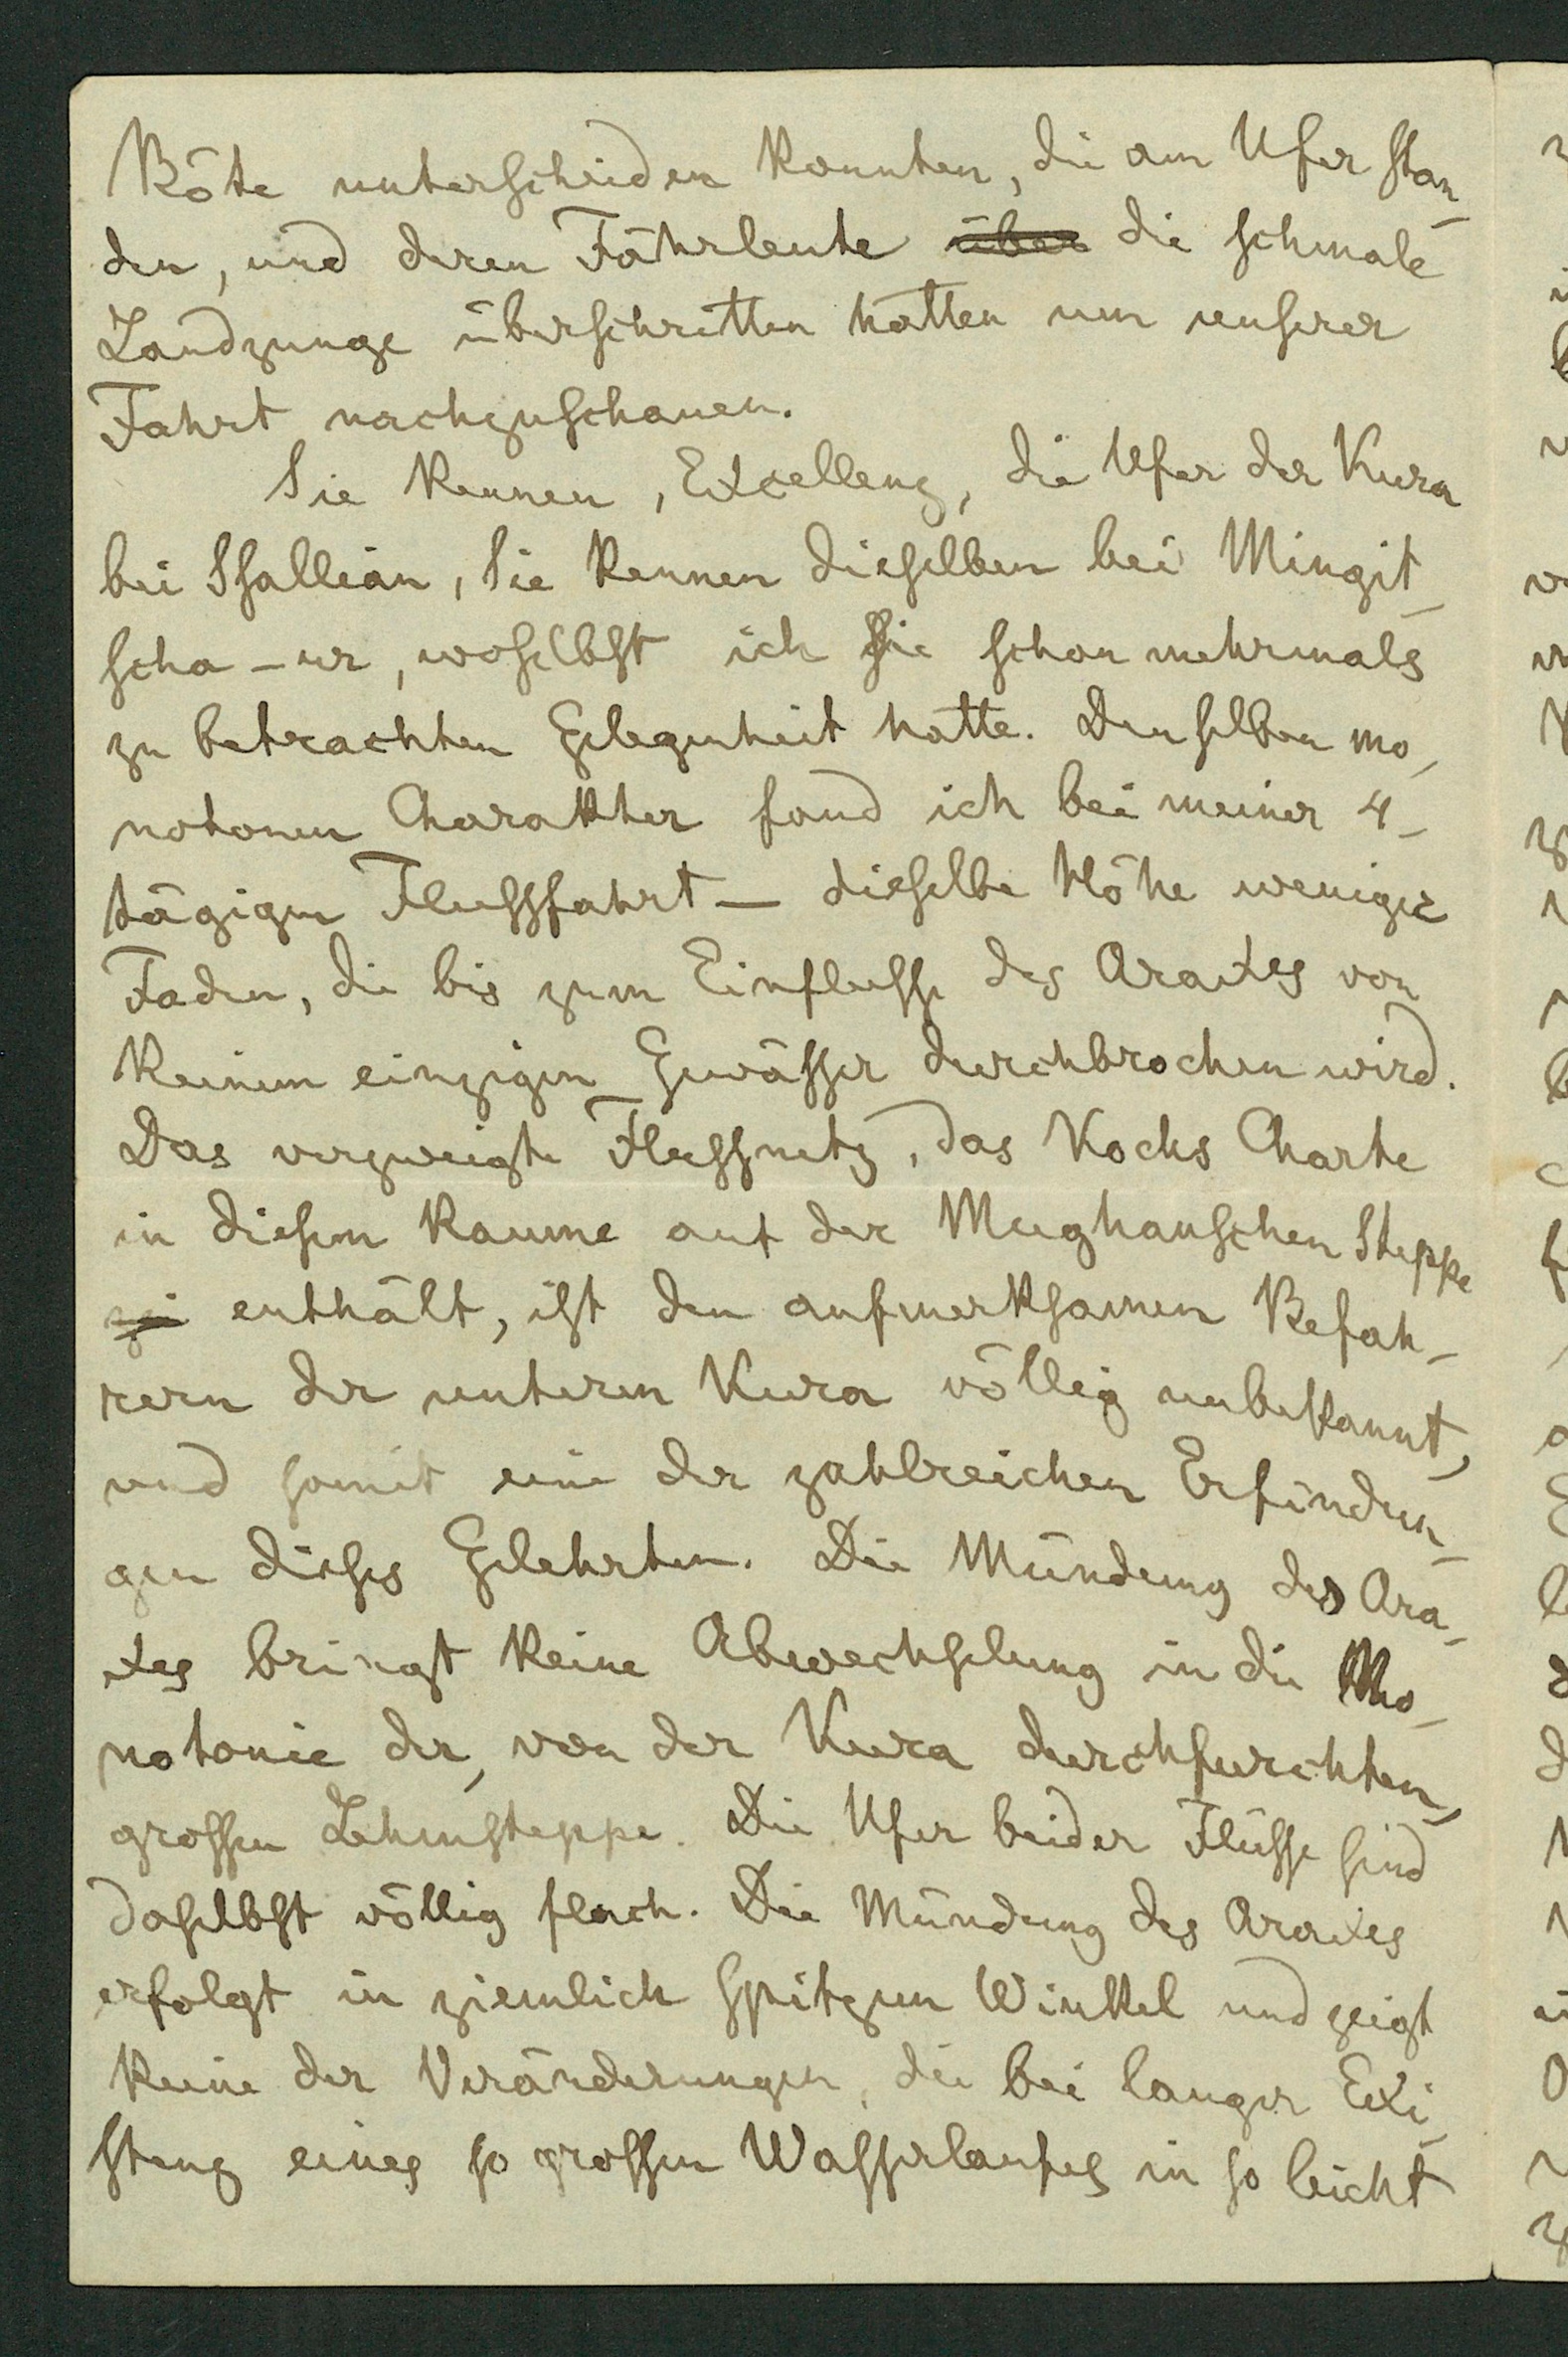 Böte unterscheiden konnten, die am Ufer stan-
den, und deren Fährleute über die schmale
Landzunge überschritten hatten um unserer
Fahrt nachzuschauen.
Sie kennen, Excellenz, die Ufer der Kura
bei Ssallian, Sie kennen dieselben bei Mingit-
scha-ur, woselbst ich sie schon mehrmals
zu betrachten Gelegenheit hatte. Denselben mo-
notonen Charakter fand ich bei meiner 4-
tägigen Flussfahrt – dieselbe Höhe weniger
Faden, die bis zum Einflusse des Araxes von
keinem einzigen Gewässer durchbrochen wird.
Das verzweigte Flussnetz, das Kochs Charte
in diesem Raume auf der Mughanschen Steppe
enthält, ist den aufmerksamen Befah-
rern der unteren Kura völlig unbekannt,
und somit eine der zahlreichen Erfindun-
gen dieses Gelehrten. Die Mündung des Ara-
xes bringt keine Abwechselung in die Mo-
notonie der, von der Kura durchfurchten,
grossen Lehmsteppe. Die Ufer beider Flüsse sind
daselbst völlig flach. Die Mündung des Araxes
erfolgt in ziemlich spitzem Winkel und zeigt
keine der Veränderungen, die bei langer Exi-
stenz eines so grossen Wasserlaufes in so leicht